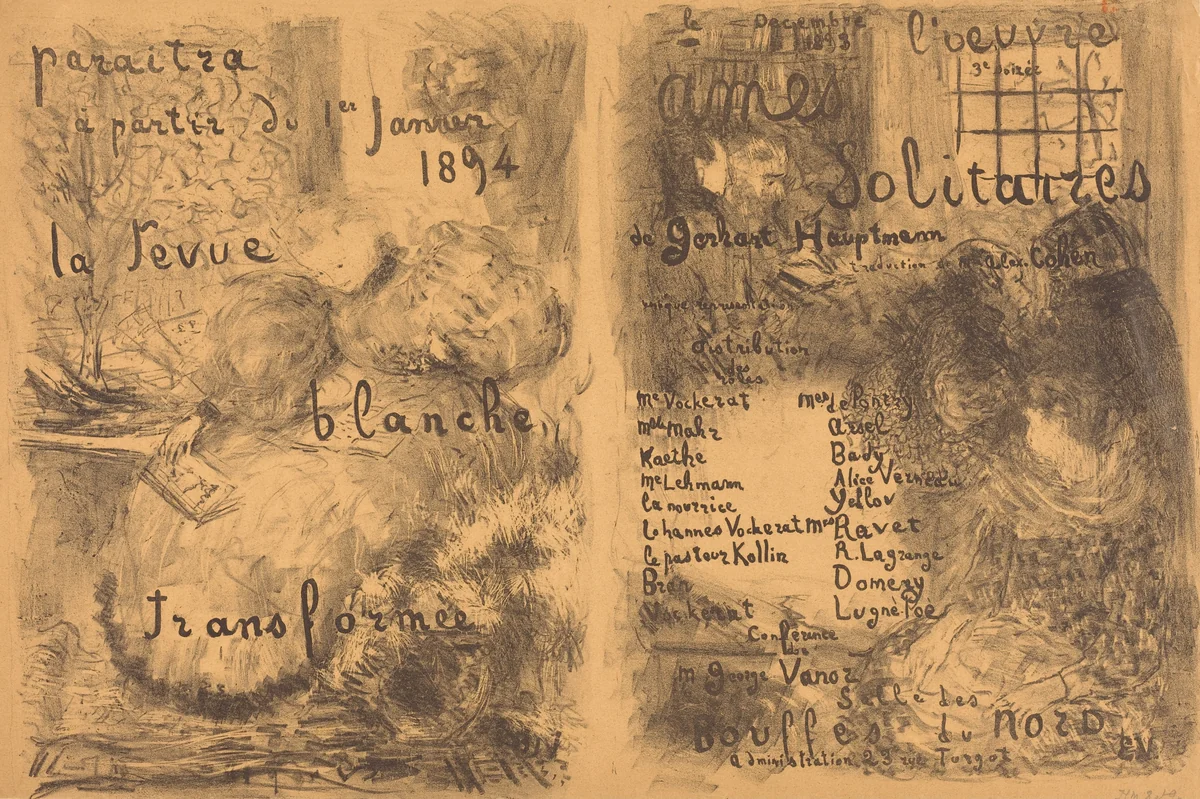 paraitra
à partir du 1er Janvier
1894
la revue
blanche
transformée
le Decembre
1893
l'oeuvre
3e soirée
ames
solitaires
de Gerhart Hauptmann
traduction de Mr alex. Cohen
unique representation
distribution
des
roles
Me Vockerat Mes de Pontry
Melle Mahr Arsel
Kaethe Bady
Me Lehmann Alice Verneau
la nourrice Yellov
Iohannes Vockerat Mrs Ravet
le pasteur Kollin R. Lagrange
Bran Domeny
Vockerat Lugné Poe
Conférence
de
m george Vanor
Salle des
Bouffes du NORD
administration 23 rue Turgot
E.V.